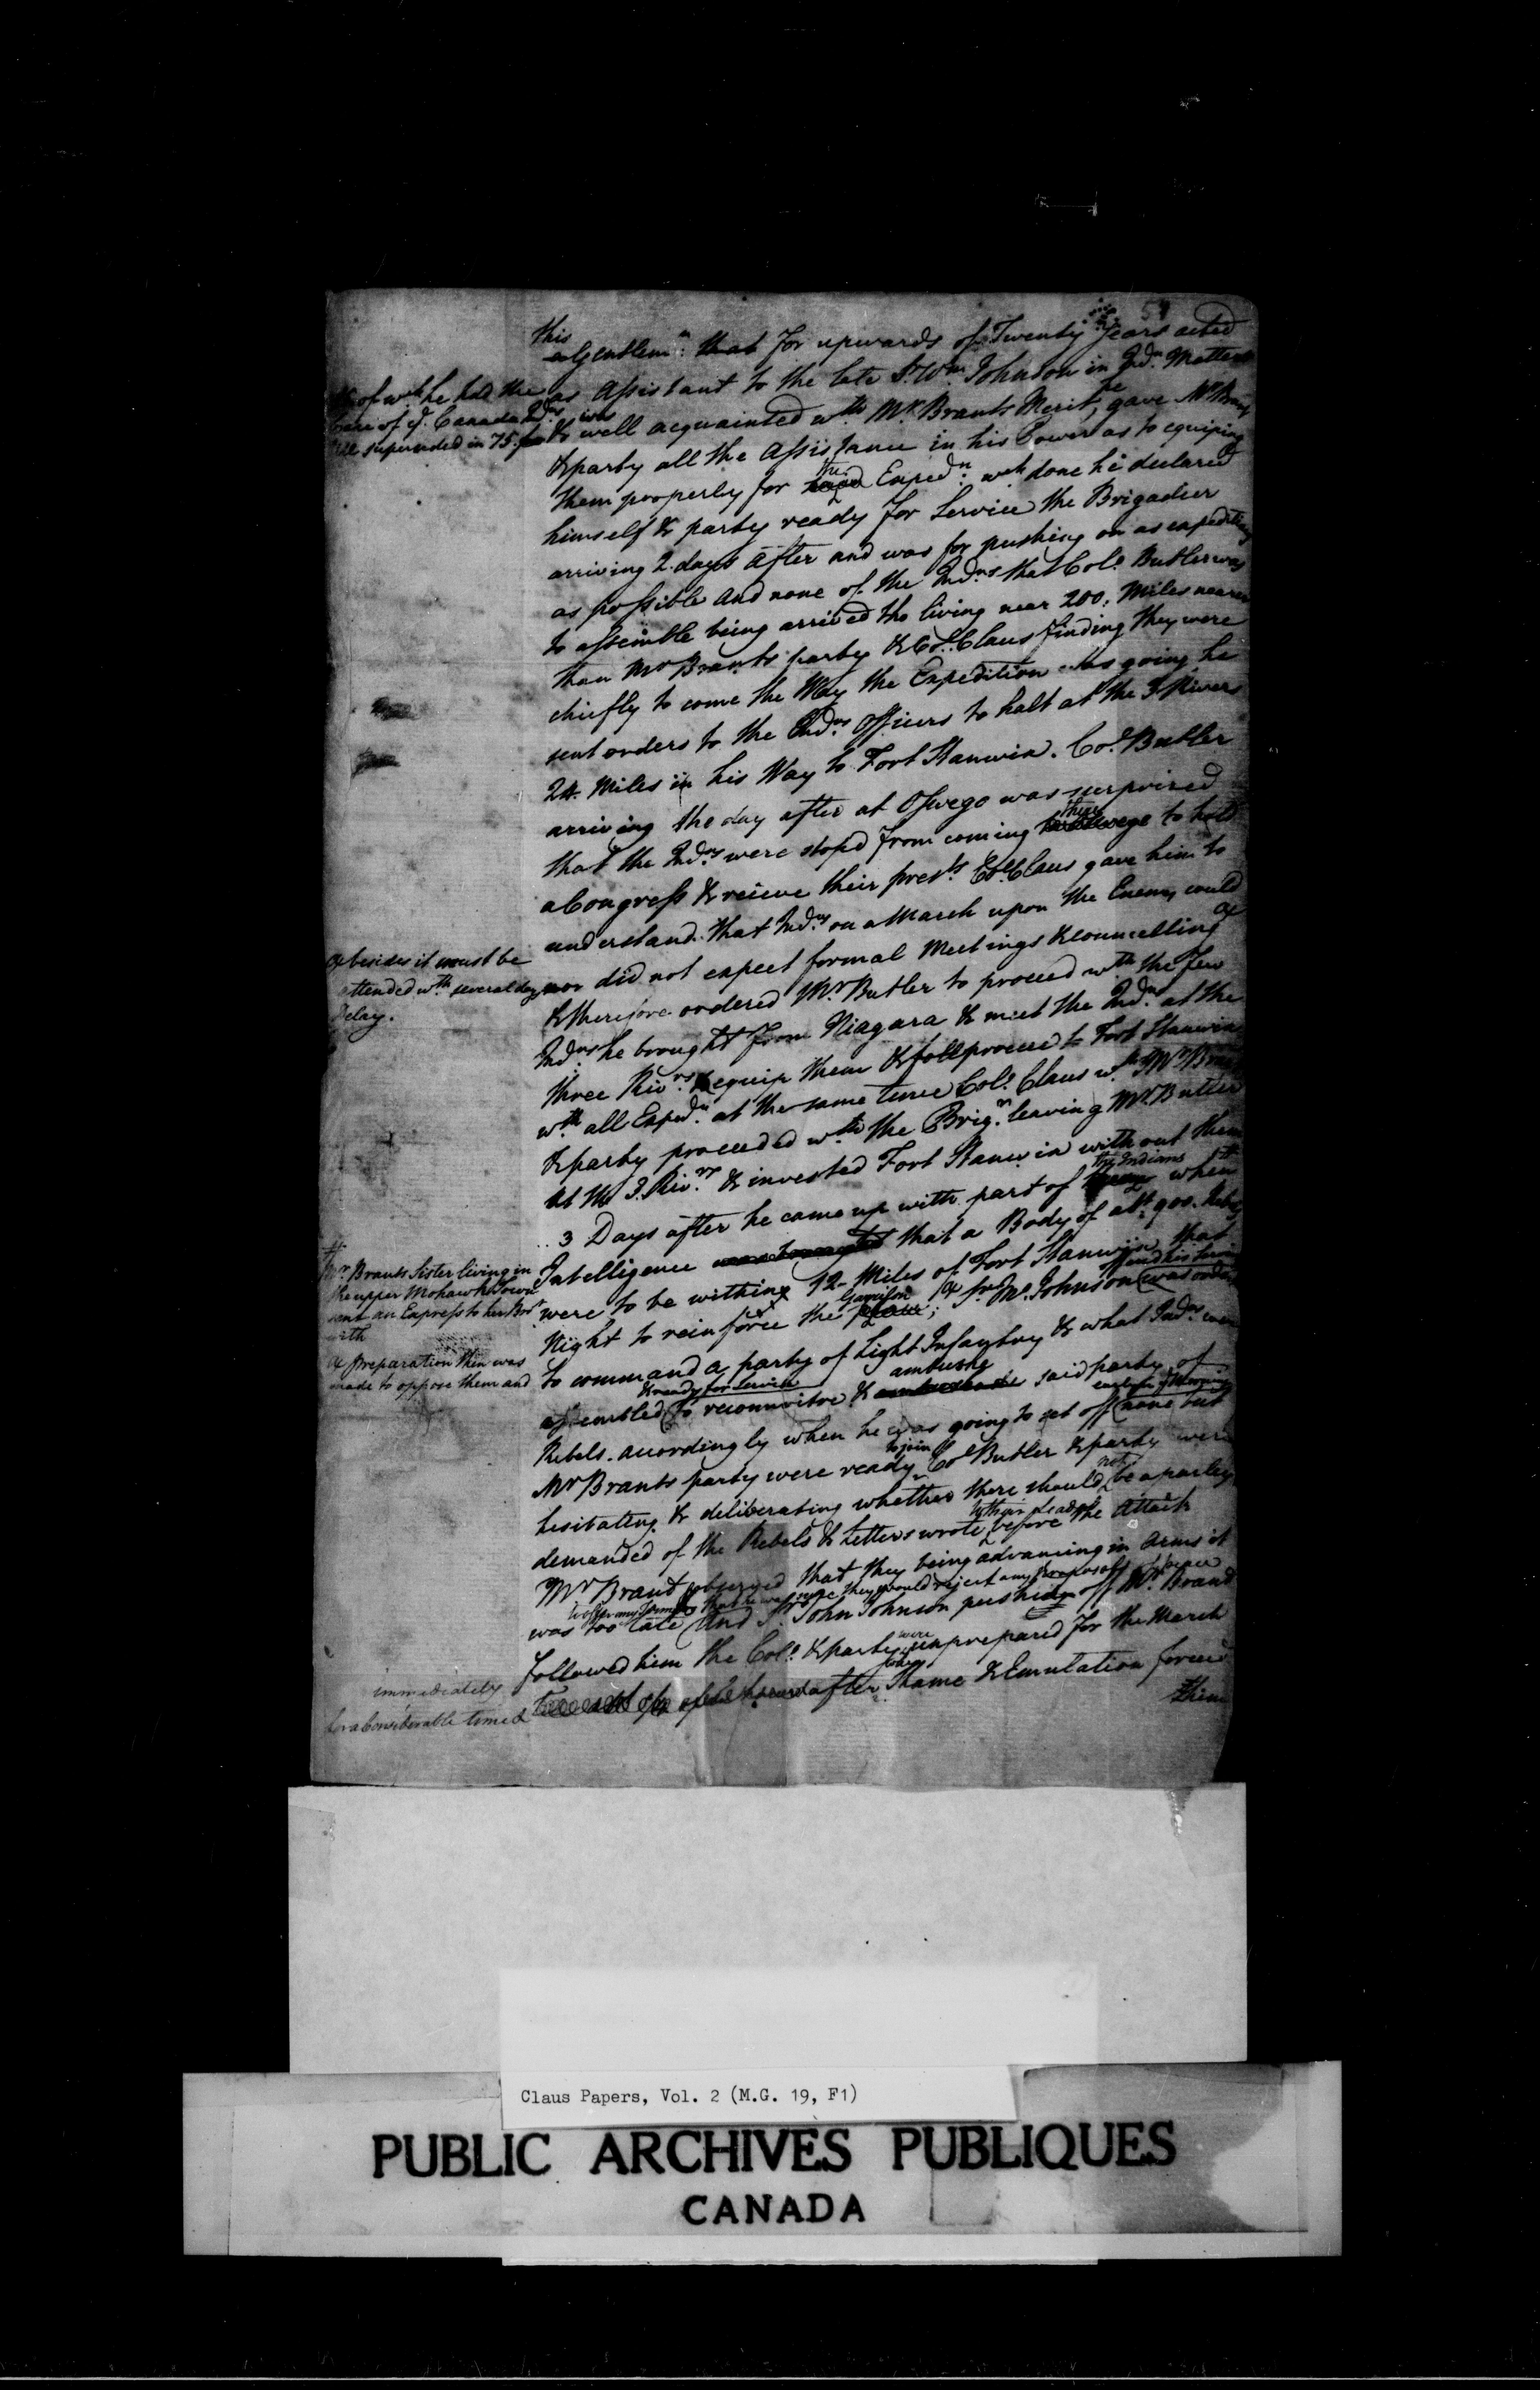 59
this
a Gentlemn: that for upwards of Twenty Years acted
as Assistant to the late Sr. Wm. Johnson in Indn. Matters
of wch he had the
Care of ye. Canada Inds.
till superseded in 75.
& was well acquainted wth Mr. Brants Merit, he gave Mr Brant
& party all the Assistance in his Power as to equiping
them properly for the Expedn. wch done he declared
himself & party ready for Service the Brigadier
arriving 2 days after and was for pushing on as expeditiously
as possible and none of the Indns that Colo. Butler was
to assemble being arrived tho living near 200 Miles nearer
than Mr Brants party & Col. Claus finding they were
chiefly to come the Way the Expedition was going he
sent orders to the Indns Officers to halt at the 3 Rivers
24 Miles in his Way to Fort Stanwix. Colo. Butler
arriving the day after at Oswego was surprized
that the Indns were stopd from coming there to Oswego to hold
a Congress & recieve their prests. Colo. Claus gave him to
understand that Indns on a March upon the Enemy could
nor did not expect formal Meetings & councelling
& besides it must be
attended wth several days
delay.
& therefore ordered Mr Butler to proceed wth the few
Indns he brought from Niagara & meet the Indns at the
three Rivrs. & equip them & proceed to Fort Stanwix
wth all Expedn. at the same time Colo. Claus wth Mr Brant
& party proceeded wth the Brigr. leaving Mr. Butler
at the 3. Rivrs. & invested Fort Stanwix without them
3 Days after he came up with part of the Indians when
Intelligence that a Body of abt. 900. Rebels
Mr. Brants Sister living in
the upper Mohawk Town
sent an Express to her Bror.
with
were to be within 12 Miles of Fort Stanwix that
Night to reinforce the Garrison place; Sr. Jno. Johnson offered his Service was ordered
& preparation then was
made to oppose them and
to command a party of Light Infantry & what Indns were
assembled & ready for service to reconnoitre & ambush said party of
Rebels. accordingly when he was going to set off early in ye Morning none but
Mr Brants party were ready to join Col Butler & party were
hesitating & deliberating whether there should not be a parley
demanded of the Rebels & Letters wrote to their Leaders before the Attack
Mr Brant observed that they being advancing in Arms it
was too late to offer any Terms that he was sure they would reject any proposals of peace
And Sr. John Johnson pushing off Mr. Brant
followed him the Colo. & party were unprepared for the March
immediately
for a Considerable time &
after Shame & Emulation forced
them
Claus Papers, Vol. 2 (M.G. 19, F1)
PUBLIC ARCHIVES PUBLIQUES
CANADA